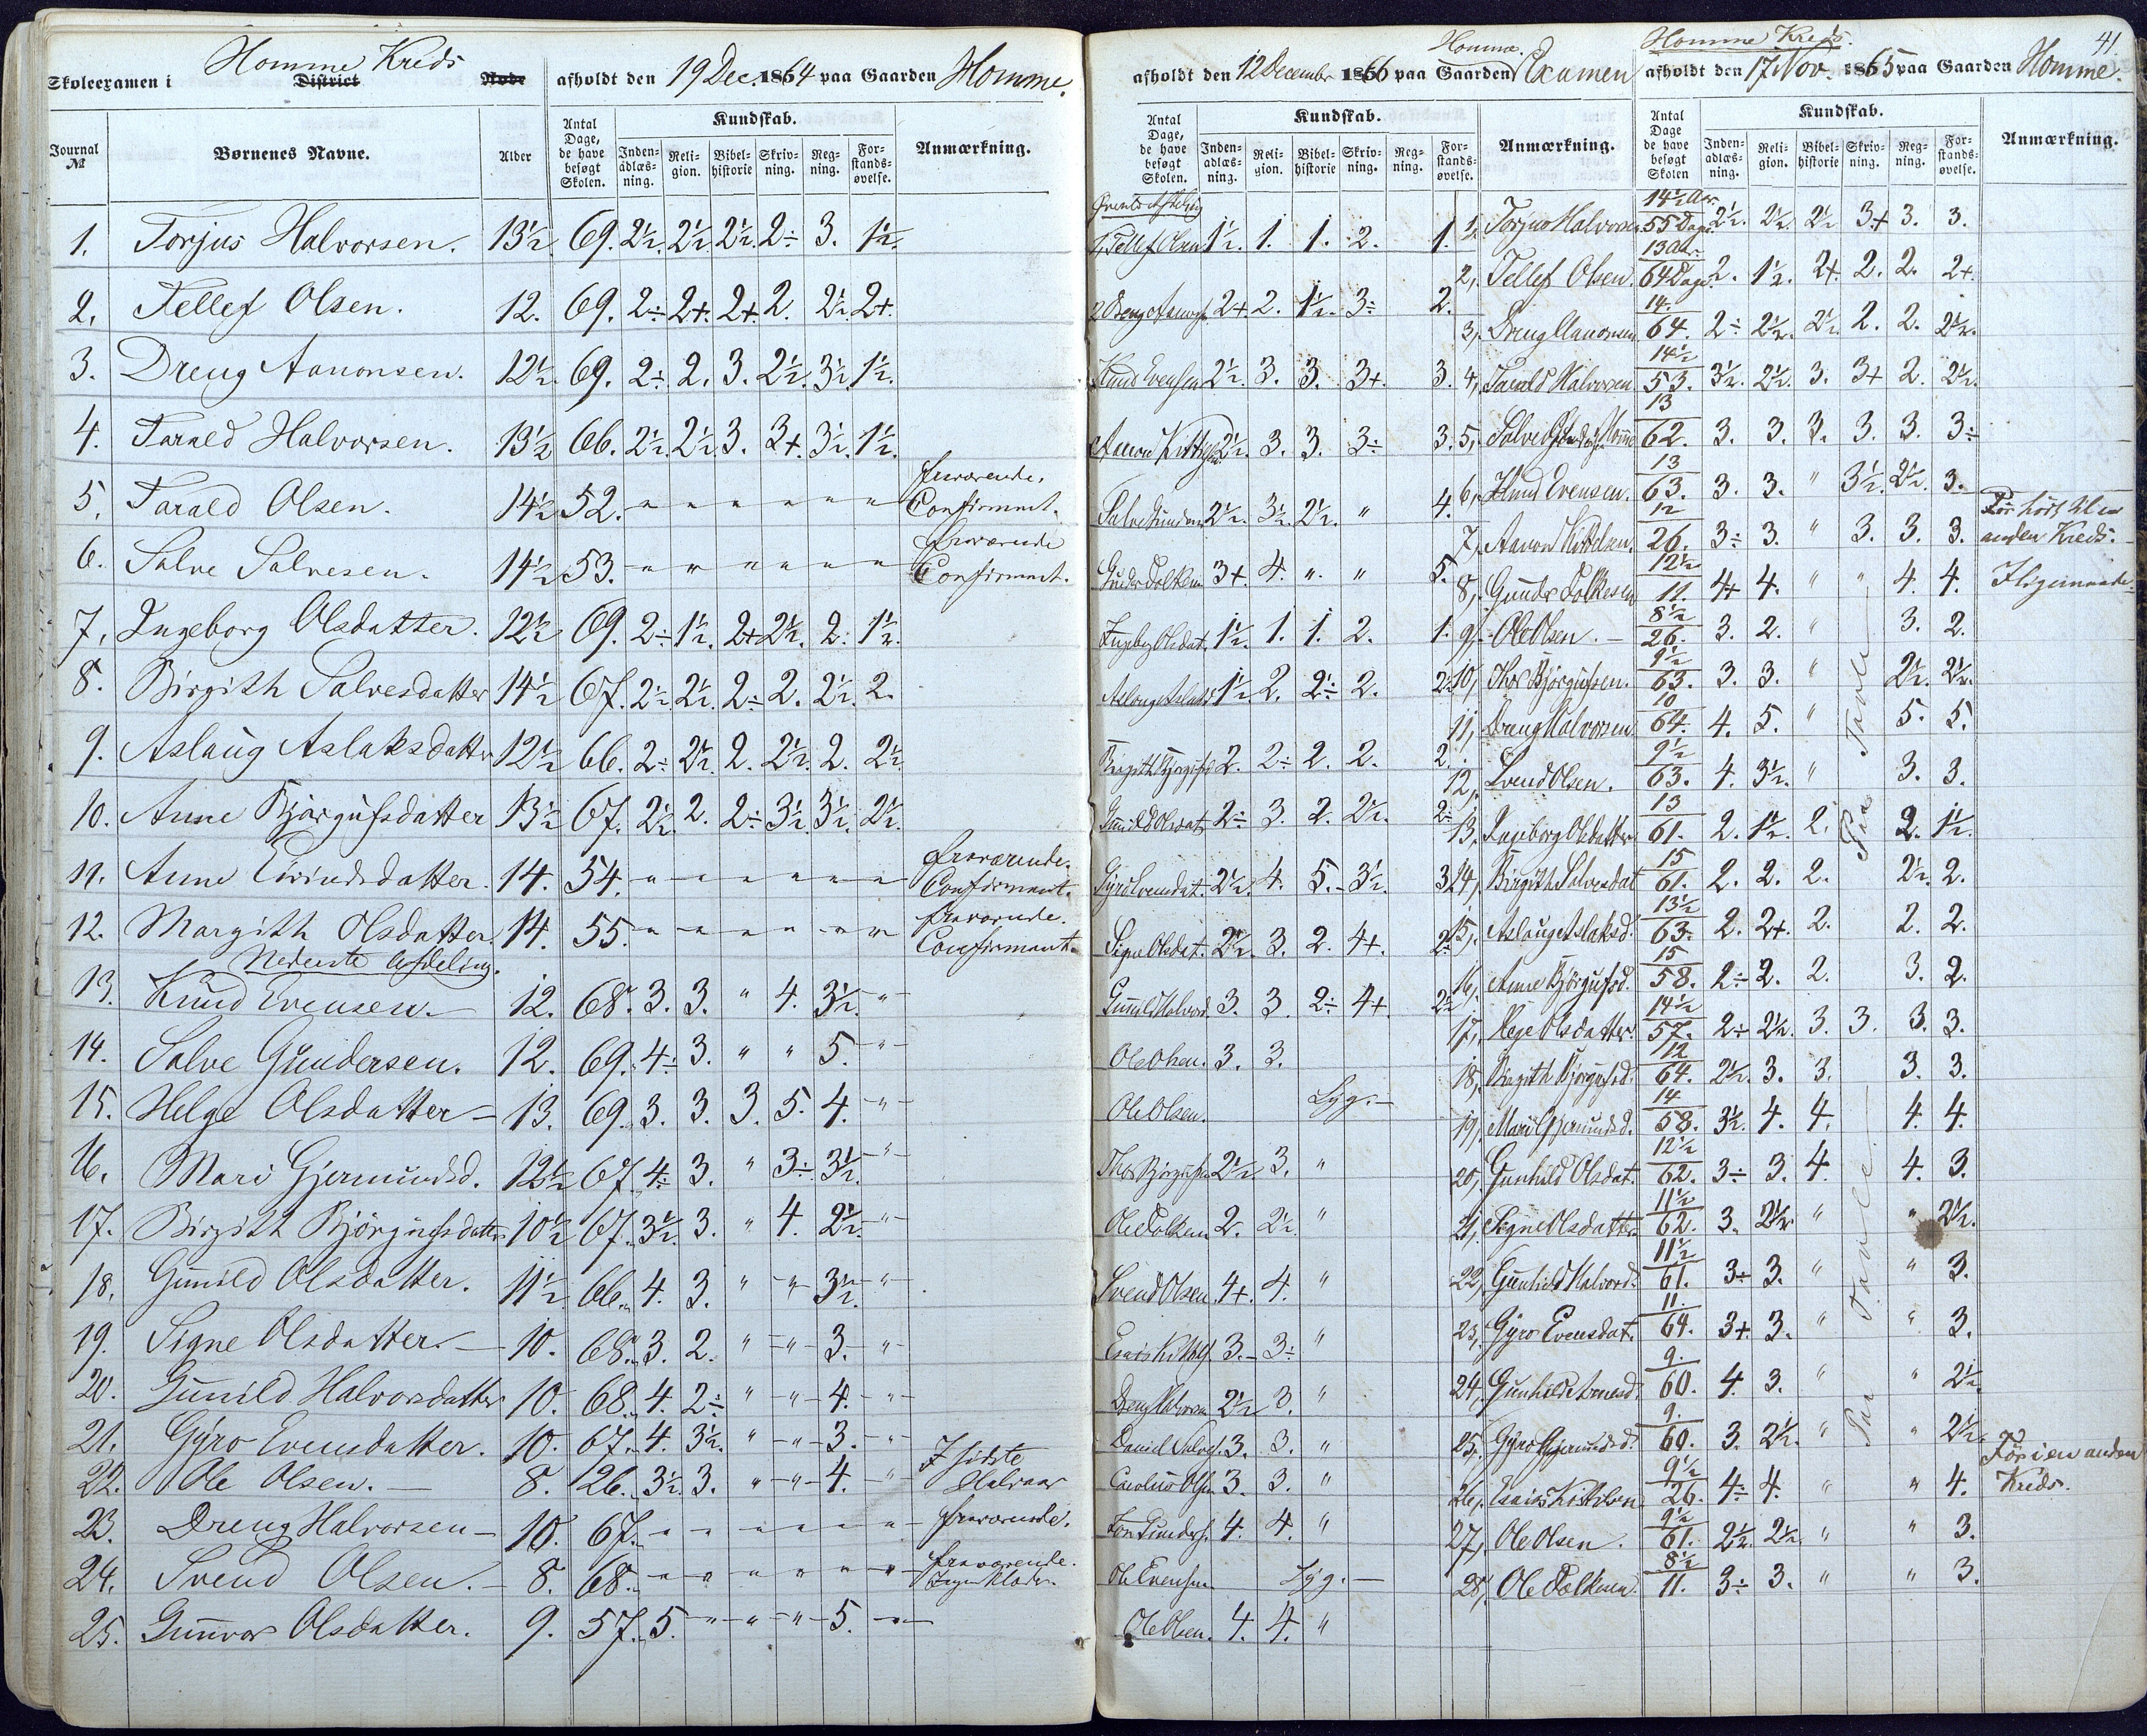 Skoleexamen i Homme Kreds District Node afholdt den 19 Dec. 1864 paa Gaarden Homme.
Journal № Børnenes Navne. Alder Antal Dage, de have besøgt Skolen. Kundskab. Anmærkning.
Indenadlæsning. Religion. Bibelhistorie Skrivning. Regning. Forstandsøvelse.
1. Torjus Halvorsen. 13½ 69. 2½. 2½. 2½. 2÷ 3. 1½.
2. Tellef Olsen. 12. 69. 2÷ 2+. 2+. 2. 2½. 2+.
3. Dreng Aanonsen. 12½. 69. 2÷. 2. 3. 2½. 3½. 1½.
4. Tarald Halvorsen. 13½ 66. 2½. 2½. 3. 3+. 3½. 1½.
5. Tarald Olsen. 14½ 52. " " " " " " fraværende. Confirmant.
6. Salve Salvesen. 14½ 53. " " " " " " fraværende Confirmant.
7. Ingeborg Olsdatter. 12½ 69. 2÷ 1½. 2+ 2½. 2. 1½.
8. Birgith Salvesdatter 14½ 67. 2½. 2½. 2÷ 2. 2½. 2.
9. Aslaug Aslaksdatter 12½ 66. 2÷ 2½. 2. 2½. 2. 2½.
10. Anne Bjørgufsdatter 13½ 67. 2½. 2. 2÷ 3½. 3½. 2½.
11. Anne Eivindsdatter. 14. 54. " " " " " " fraværende. Confirmant.
12. Margith Olsdatter. 14. 55. " " " " " " fraværende. Confirmant.
Nederste Afdeling.
13. Knud Evensen. 12. 68. 3. 3. " 4. 3½. "
14. Salve Gundersen. 12. 69. 4÷ 3. " " 5. "
15. Helge Olsdatter 13. 69. 3. 3. 3. 5. 4. "
16. Mari Gjermundsd. 12½ 67. 4÷ 3. " 3÷ 3½. "
17. Birgith Bjørgufsdatter 10½ 67. 3½. 3. " 4. 2½. "
18. Gunild Olsdatter. 11½ 66. 4. 3. " " 3½. "
19. Signe Olsdatter. 10. 68. 3. 2. " " 3. "
20. Gunild Halvorsdatter 10. 68. 4. 2÷ " " 4. "
21. Gyro Evensdatter. 10. 67. 4. 3½. " " 3. "
22. Ole Olsen. 8. 26. 3½. 3. " " 4. " I sidste Halvaar
23. Dreng Halvorsen 10. 67. " " " " " " fraværende.
24. Svend Olsen. 8. 68. " " " " " " fraværende. Ingen Klæder.
25. Gunvor Olsdatter. 9. 57. 5. " " " 5. "
afholdt den 12 December 1866 paa Gaarden Homme. Examen
Antal Dage, de have besøgt Skolen. Kundskab. Anmærkning.
Indenadlæsning. Religion. Bibelhistorie Skrivning. Regning. Forstandsøvelse.
Øverste Afdeling
1, Tellef Olsen 1½. 1. 1. 2. 1.
2 Dreng Aanons. 2+ 2. 1½. 3÷ 2.
Knud Evensen 2½. 3. 3. 3+. 3.
Aanon Kittelsen 2½. 3. 3. 3÷ 3.
Salve Gunders. 2½. 3½. 2½. " 4.
Gunder Folkesen 3+. 4. " " 5.
Ingeborg Olsdat. 1½. 1. 1. 2. 1.
Aslaug Aslaksd. 1½. 2. 2÷ 2. 2
Birgith Bjørgufsd. 2. 2÷ 2. 2. 2.
Gunild Olsdat. 2÷ 3. 2. 2½. 2÷
Gyro Evensdat. 2½. 4. 5. 3½. 3
Signe Olsdat. 2½. 3. 2. 4+. 2
Gunild Halvord. 3. 3. 2÷ 4+. 2
Ole Olsen. 3. 3.
Ole Olsen. Syg.
Thor Bjørgufsen 2½. 3. "
Ole Folkesen 2. 2½. "
Svend Olsen. 4+. 4. "
Esaias Kittels. 3. 3÷ "
Dreng Halvorsen 2½ 3. "
Daniel Salves. 3. 3. "
Carolus Olsen 3. 3. "
Jon Gunders. 4. 4. "
Ole Evensen Syg.
Ole Olsen. 4. 4. "
Homme Kreds. 41.
afholdt den 17 Nov. 1865 paa Gaarden Homme.
Antal Dage de have besøgt Skolen Kundskab. Anmærkning.
Indenadlæsning. Religion. Bibelhistorie Skrivning. Regning. Forstandsøvelse.
1, Torjus Halvorsen 14½ Aar 55 Dage 2½. 2½. 2½ 3+ 3. 3.
2, Tellef Olsen. 13 Aar. 64 Dage. 2. 1½. 2+. 2. 2. 2+.
3, Dreng Aanonsen 14. 64. 2÷ 2½. 2½. 2. 2. 2½.
4, Tarald Halvorsen 14½ 53. 3½. 2½. 3. 3+ 2. 2½.
5, Salve Gundersen Homme 13 62. 3. 3. 3. 3. 3. 3÷
6, Knud Evensen. 13 63. 3. 3. " 3½. 2½. 3.
7, Aanon Kittelsen. 12 26. 3÷ 3. " 3. 3. 3. Før hørt til en anden Kreds.
8, Gunder Folkesen 12½ 11. 4+ 4. " " 4. 4. Iligemaade
9, Ole Olsen. 8½ 26. 3. 2. " 3. 2.
10, Thor Bjørgufsen. 9½ 63. 3. 3. " 2½. 2½.
11, Dreng Halvorsen 10 64. 4. 5. " 5. 5.
12, Svend Olsen. 9½ 63. 4. 3½. " 3. 3.
13, Ingeborg Olsdatter 13 61. 2. 1½. 2. 2. 1½.
14, Birgith Salvesdat 15 61. 2. 2. 2. 2½. 2.
15, Aslaug Aslaksd. 13½ 63. 2. 2+. 2. 2. 2.
16, Anne Bjørgufsd. 15 58. 2÷ 2. 2. 3. 2.
17, Hege Olsdatter. 14½ 57. 2÷ 2½. 3. 3. 3. 3.
18, Birgith Bjørgufsd. 12 64. 2½. 3. 3. 3. 3.
19, Mari Gjermundsd. 14 58. 3½. 4. 4. 4. 4.
20, Gunhild Olsdat. 12½ 62. 3÷ 3. 4. 4. 3.
21, Signe Olsdatter 11½ 62. 3. 2½ " " 2½.
22, Gunhild Halvord. 11½ 61. 3÷ 3. " " 3.
23, Gyro Evensdat. 11. 64. 3+. 3. " " 3.
24, Gunhild 9. 60. 4. 3. " " 2½.
25, Gyro Gjermundsd. 9. 60. 3. 2½. " " 2½.
26, Esaias Kittelsen 9½ 26. 4÷ 4. " " 4. Før i en anden Kreds.
27, Ole Olsen. 9½ 61. 2½. 2½. " " 3.
28, Ole Folkesen 8½ 11. 3÷ 3. " " 3.
Paa Tavle
Paa Tavle